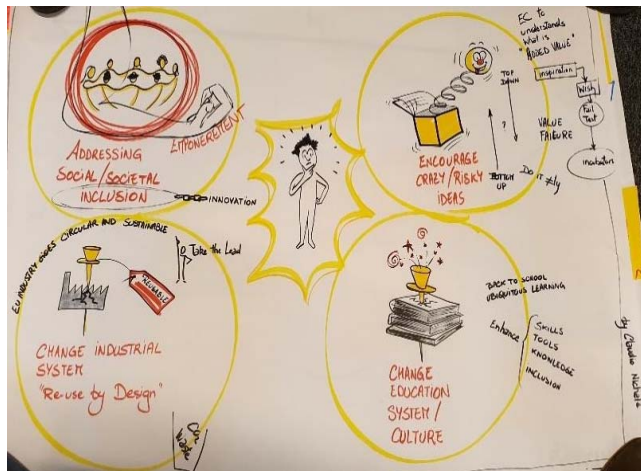 EMPOWEREMENT
ADDRESSING
SOCIAL/SOCIETAL
INCLUSION
INNOVATION
EC TO
understands
what is
"ADDED VALUE"
TOP
DOWN
?
BOTTOM
UP
inspiration
Wish
Fail
Test
incubators
VALUE
FAILURE
Do it
ENCOURAGE
CRAZY/RISKY
IDEAS
EU INDUSTRY GOES CIRCULAR AND SUSTAINABLE
Take the Lead
REUSABLE
CHANGE INDUSTRIAL
SYSTEM
"Re-use by Design"
BACK TO SCHOOL
UBIQUITOUS LEARNING
Enhance
SKILLS
TOOLS
KNOWLEDGE
INCLUSION
CHANGE
EDUCATION
SYSTEM/
CULTURE
by Claudia